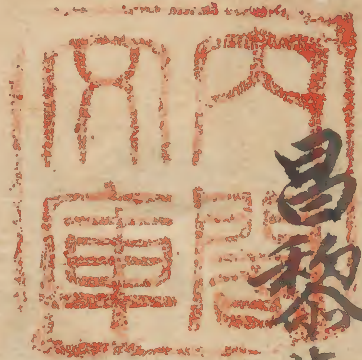 内閣
文庫
昌黎